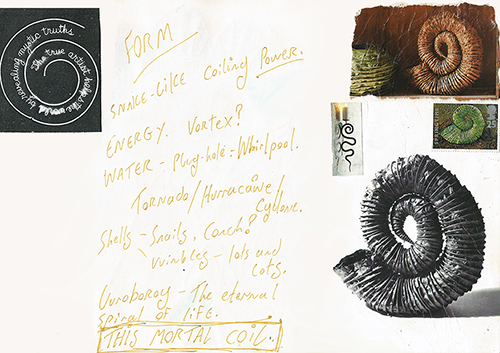 The true artist helps the world by revealing mystic truths
FORM
SNAKE-LIKE coiling Power.
ENERGY. Vortex?
WATER - Plug-hole = Whirlpool.
Tornado/Hurracane/
Cyclone.
Shells - Snails, Conch?
winkles - lots and
Lots.
Ouroboros - The eternal
spiral of life.
THIS MORTAL COIL.